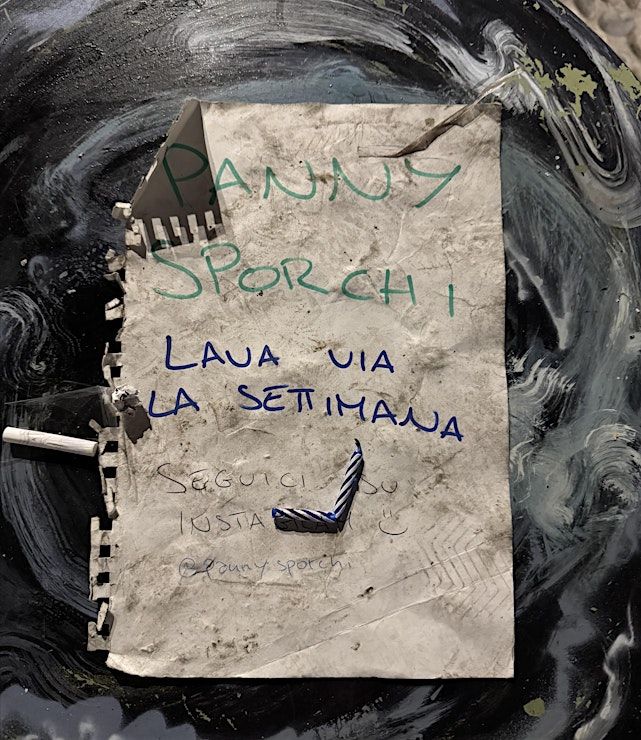 PANNY
SPORCHI
LAVA VIA
LA SETTIMANA
SEGUICI SU
INSTAGRAM :)
@pannysporchi